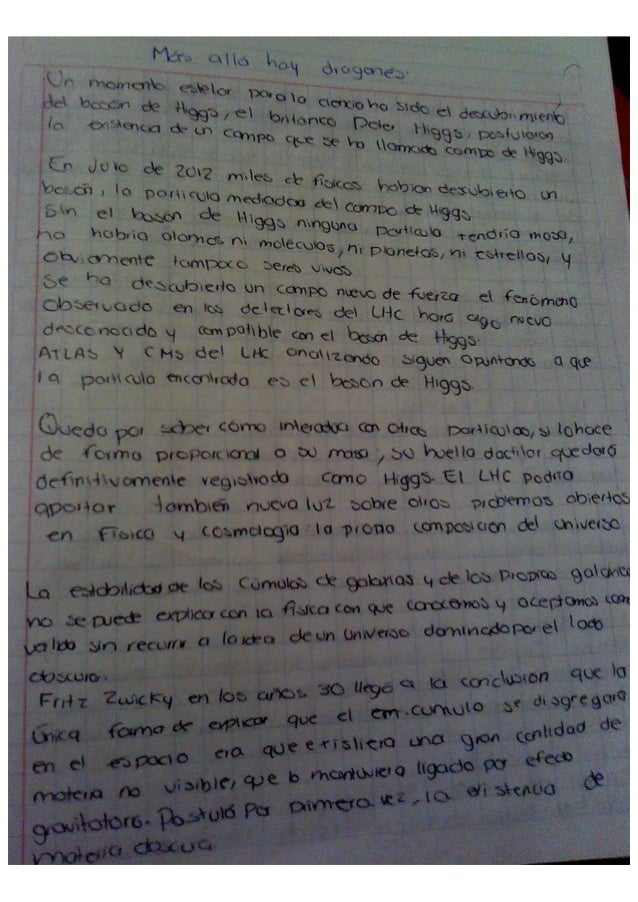 Más allá hay dragones.
Un momento estelar para la ciencia ha sido el descubrimiento
del bosón de Higgs, el britanico Peter Higgs, postularon
la existencia de un campo que se ha llamado campo de Higgs.
En Julio de 2012 miles de fisicos habian desubierto un
bosón, la particula mediadora del campo de Higgs
Sin el bosón de Higgs ninguna particula tendria masa,
no habria atomos ni moleculas, ni planetas, ni estrellas, y
obviamente tampoco seres vivos
Se ha descubierto un campo nuevo de fuerza el fenómeno
observado en los detectores del LHC hara algo nuevo
desconocido y compatible con el boson de Higgs.
ATLAS Y CMS del LHC analizando siguen apuntando a que
la particula encontrada es el boson de Higgs.
Queda por saber como interactua con otras particulas, si lo hace
de forma proporcional a su masa, su huella dactilar quedará
definitivamente registrada como Higgs. El LHC podria
aportar también nueva luz sobre otros problemas abiertos
en Física y cosmología la propia composicion del universo
La estabilidad de los cúmulos de galaxias y de las propias galaxias
no se puede explicar con la fisica con que conocemos y aceptamos como
valida sin recurrir a la idea de un universo dominado por el lado
obscuro.
Fritz Zwicky en los años 30 llego a la conclusion que la
única forma de explicar que el em. cumulo se disgregara
en el espacio era que existiera una gran cantidad de
materia no visible, que lo mantuviera ligado por efecto
gravitatoro. Postuló por primera vez, la existencia de
materia obscura